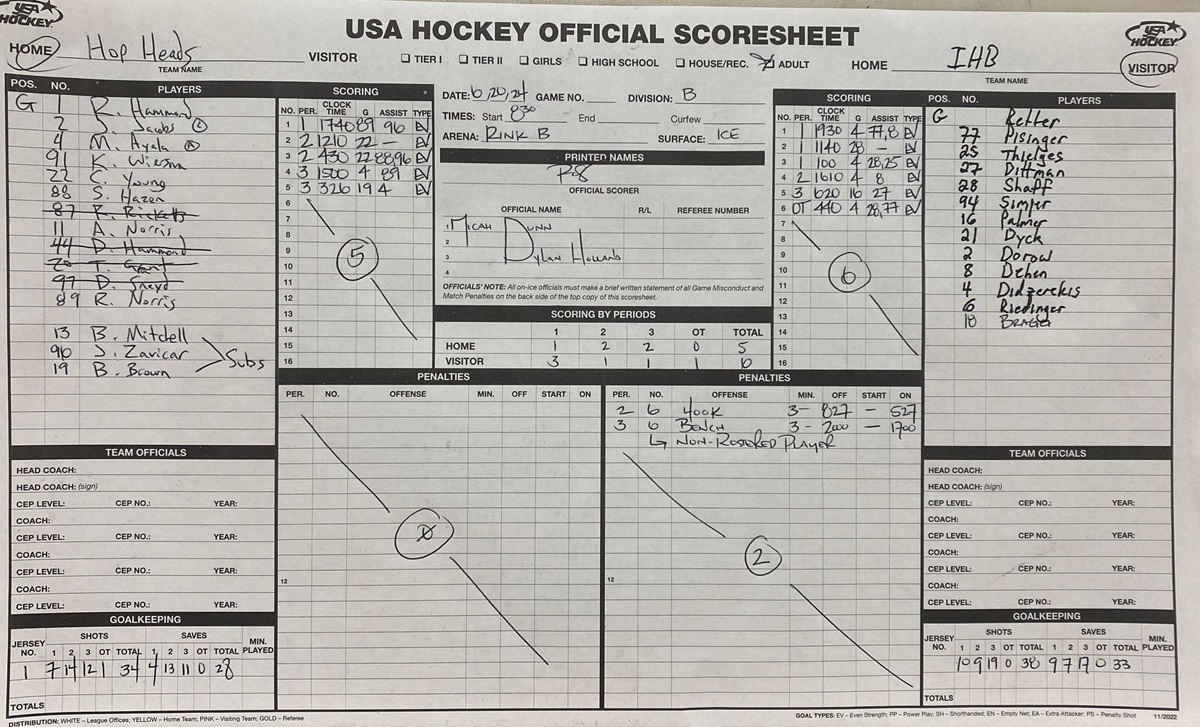 USA HOCKEY
USA HOCKEY OFFICIAL SCORESHEET
USA HOCKEY
HOME Hop Heads VISITOR
TEAM NAME
☐ TIER I ☐ TIER II ☐ GIRLS ☐ HIGH SCHOOL ☐ HOUSE/REC. ☒ ADULT
HOME IHB VISITOR
TEAM NAME
POS. NO. PLAYERS
G 1 R. Hammond
2 J. Jacobs
4 M. Ayala
91 K. Wiksma
22 C. Young
88 S. Hazen
87 R. Ricketts
11 A. Norris
44 D. Hammond
20 T. Grant
97 D. Sneyd
89 R. Norris
13 B. Mitchell
96 J. Zavicar
19 B. Brown
Subs
SCORING
NO. PER. CLOCK TIME G ASSIST TYPE
1 1 1740 89 96 EV
2 2 1210 22 — EV
3 2 430 22 88 96 EV
4 3 1500 4 89 EV
5 3 326 19 4 EV
6
7
8
9
10
11
12
13
14
15
16
5
DATE: 6/20/24 GAME NO. DIVISION: B
TIMES: Start 830 End Curfew
ARENA: RINK B SURFACE: ICE
PRINTED NAMES
OFFICIAL SCORER
OFFICIAL NAME R/L REFEREE NUMBER
1 MICAH DUNN
2
3 DYLAN HOLLAND
4
OFFICIALS' NOTE: All on-ice officials must make a brief written statement of all Game Misconduct and
Match Penalties on the back side of the top copy of this scoresheet.
SCORING BY PERIODS
1 2 3 OT TOTAL
HOME 1 2 2 0 5
VISITOR 3 1 1 1 6
SCORING
NO. PER. CLOCK TIME G ASSIST TYPE
1 1 1930 4 77,8 EV
2 1 1140 28 — EV
3 1 100 4 28,25 EV
4 2 1610 4 8 EV
5 3 620 16 27 EV
6 OT 440 4 28,77 EV
7
8
9
10
11
12
13
14
15
16
6
POS. NO. PLAYERS
G Retter
77 Pisinger
25 Thielges
27 Dittman
28 Shaff
94 Simper
16 Palmer
21 Dyck
2 Dorow
8 Dehen
4 Didzerekis
6 Riedinger
18
PENALTIES
PER. NO. OFFENSE MIN. OFF START ON
12
PENALTIES
PER. NO. OFFENSE MIN. OFF START ON
2 6 HOOK 3 - 827 — 527
3 6 BENCH 3 - 2000 — 1700
↳ NON-ROSTERED PLAYER
12
2
TEAM OFFICIALS
HEAD COACH:
HEAD COACH: (sign)
CEP LEVEL: CEP NO.: YEAR:
COACH:
CEP LEVEL: CEP NO.: YEAR:
COACH:
CEP LEVEL: CEP NO.: YEAR:
COACH:
CEP LEVEL: CEP NO.: YEAR:
TEAM OFFICIALS
HEAD COACH:
HEAD COACH: (sign)
CEP LEVEL: CEP NO.: YEAR:
COACH:
CEP LEVEL: CEP NO.: YEAR:
COACH:
CEP LEVEL: CEP NO.: YEAR:
COACH:
CEP LEVEL: CEP NO.: YEAR:
GOALKEEPING
SHOTS SAVES
JERSEY NO. 1 2 3 OT TOTAL 1 2 3 OT TOTAL MIN. PLAYED
1 7 14 12 1 34 4 13 11 0 28
TOTALS
GOALKEEPING
SHOTS SAVES
JERSEY NO. 1 2 3 OT TOTAL 1 2 3 OT TOTAL MIN. PLAYED
10 9 19 0 38 9 7 17 0 33
TOTALS
DISTRIBUTION: WHITE – League Offices; YELLOW – Home Team; PINK – Visiting Team; GOLD – Referee
GOAL TYPES: EV – Even Strength; PP – Power Play; SH – Shorthanded; EN – Empty Net; EA – Extra Attacker; PS – Penalty Shot 11/2022